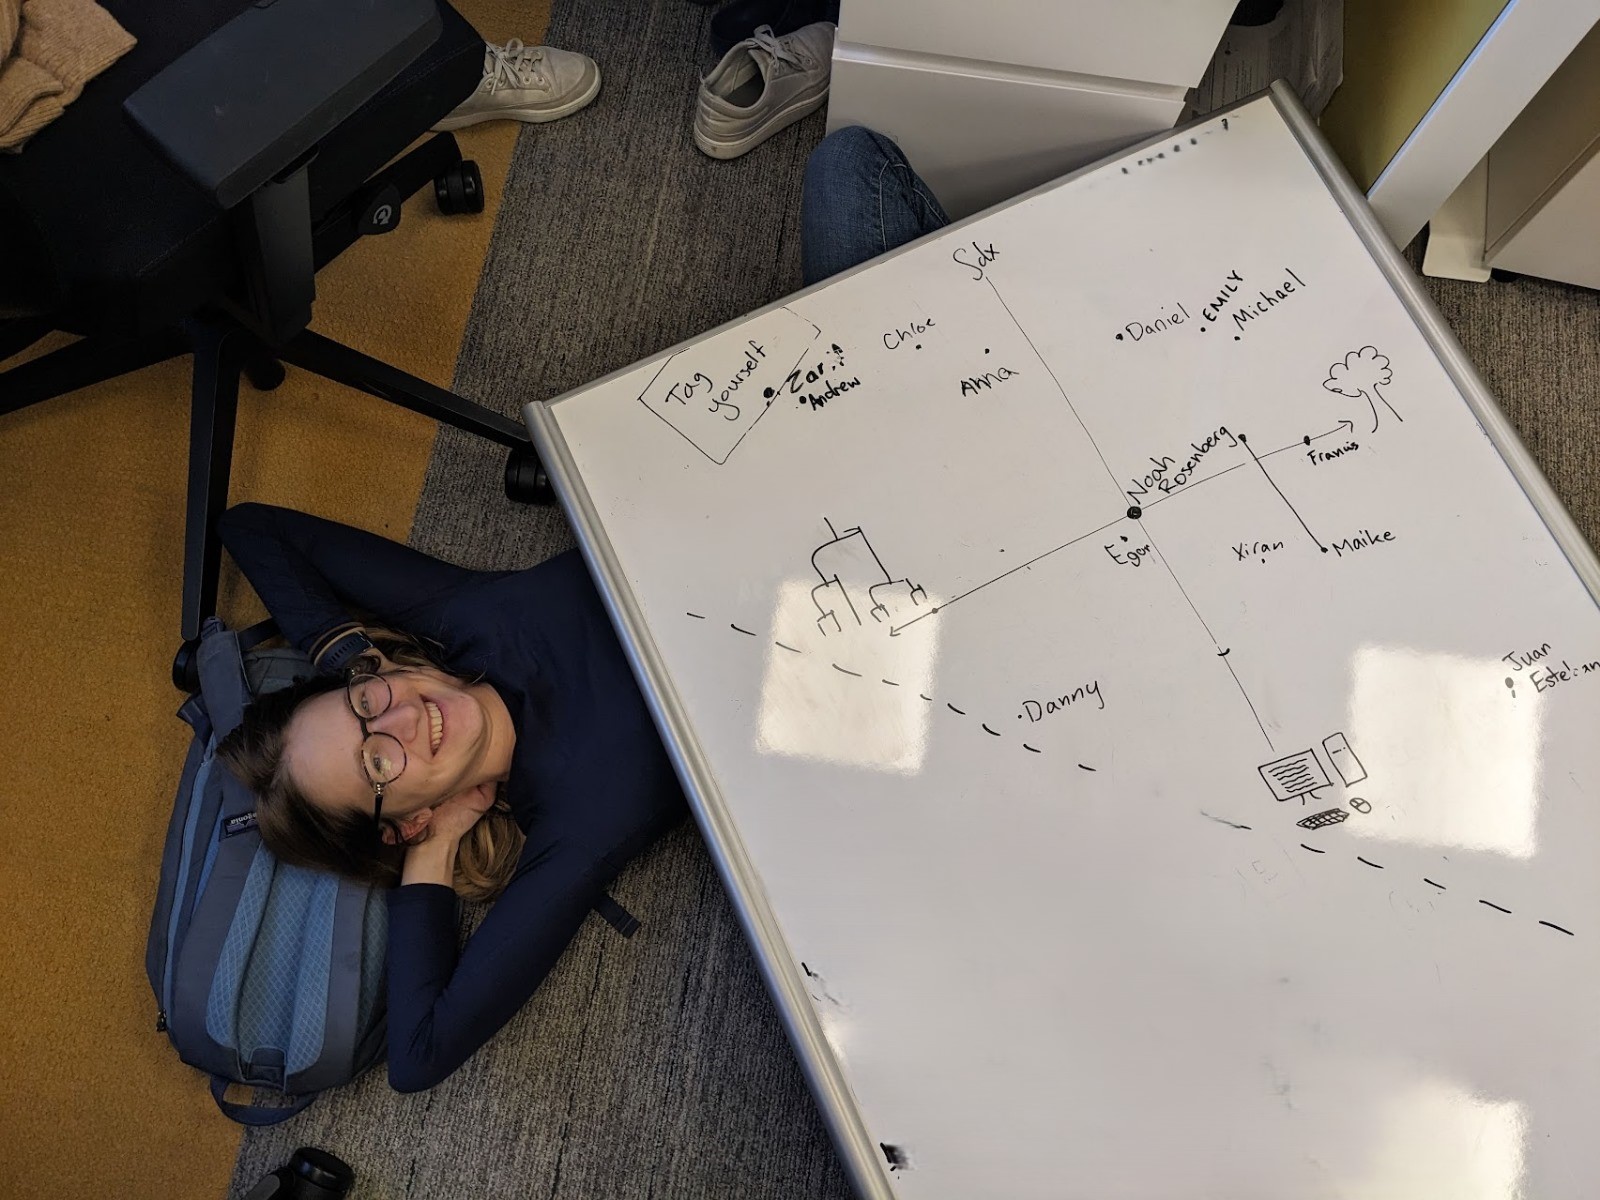 Sdx
Tag
yourself
Zar
Andrew
Chloe
Anna
Daniel
EMILY
Michael
Noah
Rosenberg
Francis
Egor
Xiran
Maike
Danny
Juan
patagonia